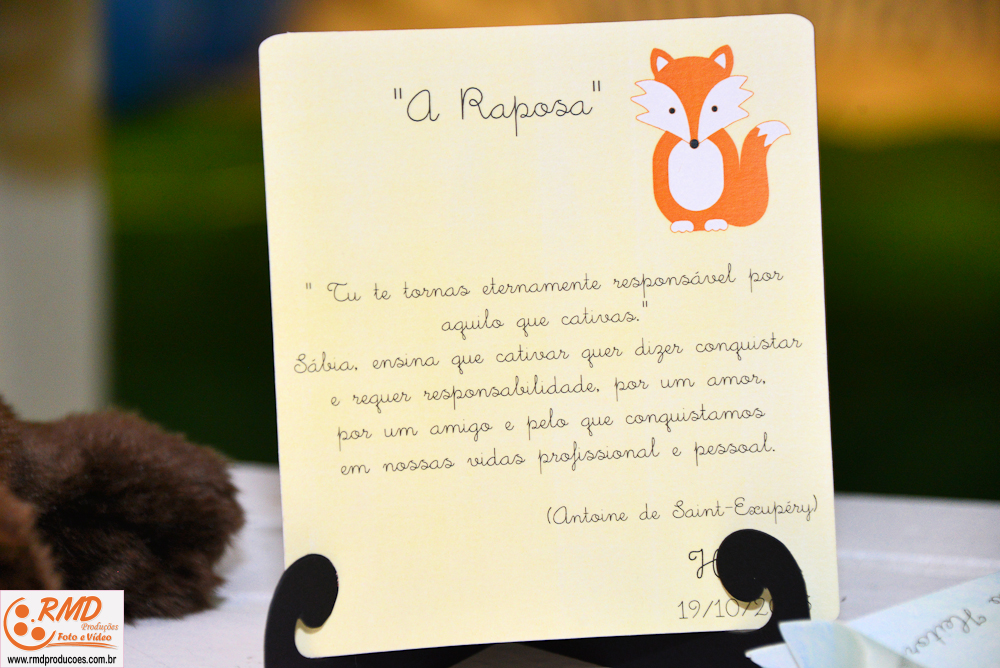 "A Raposa"
" Tu te tornas eternamente responsável por
aquilo que cativas."
Sábia, ensina que cativar quer dizer conquistar
e requer responsabilidade, por um amor,
por um amigo e pelo que conquistamos
em nossas vidas profissional e pessoal.
(Antoine de Saint-Exupéry)
19/10/
Heitor
RMD
Produções
Foto e Vídeo
www.rmdproducoes.com.br